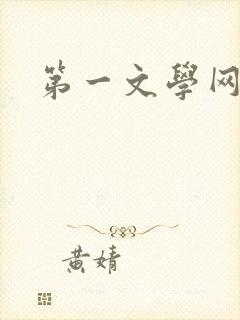 第一文學网
黄婧